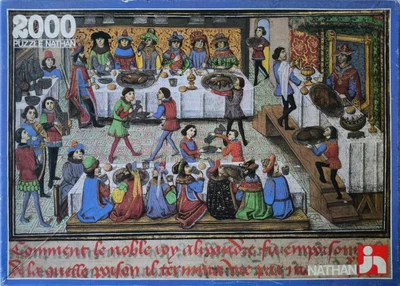 2000
PUZZLE NATHAN
Comment le noble roy alixandre fu empoison
de la quelle poison il
NATHAN